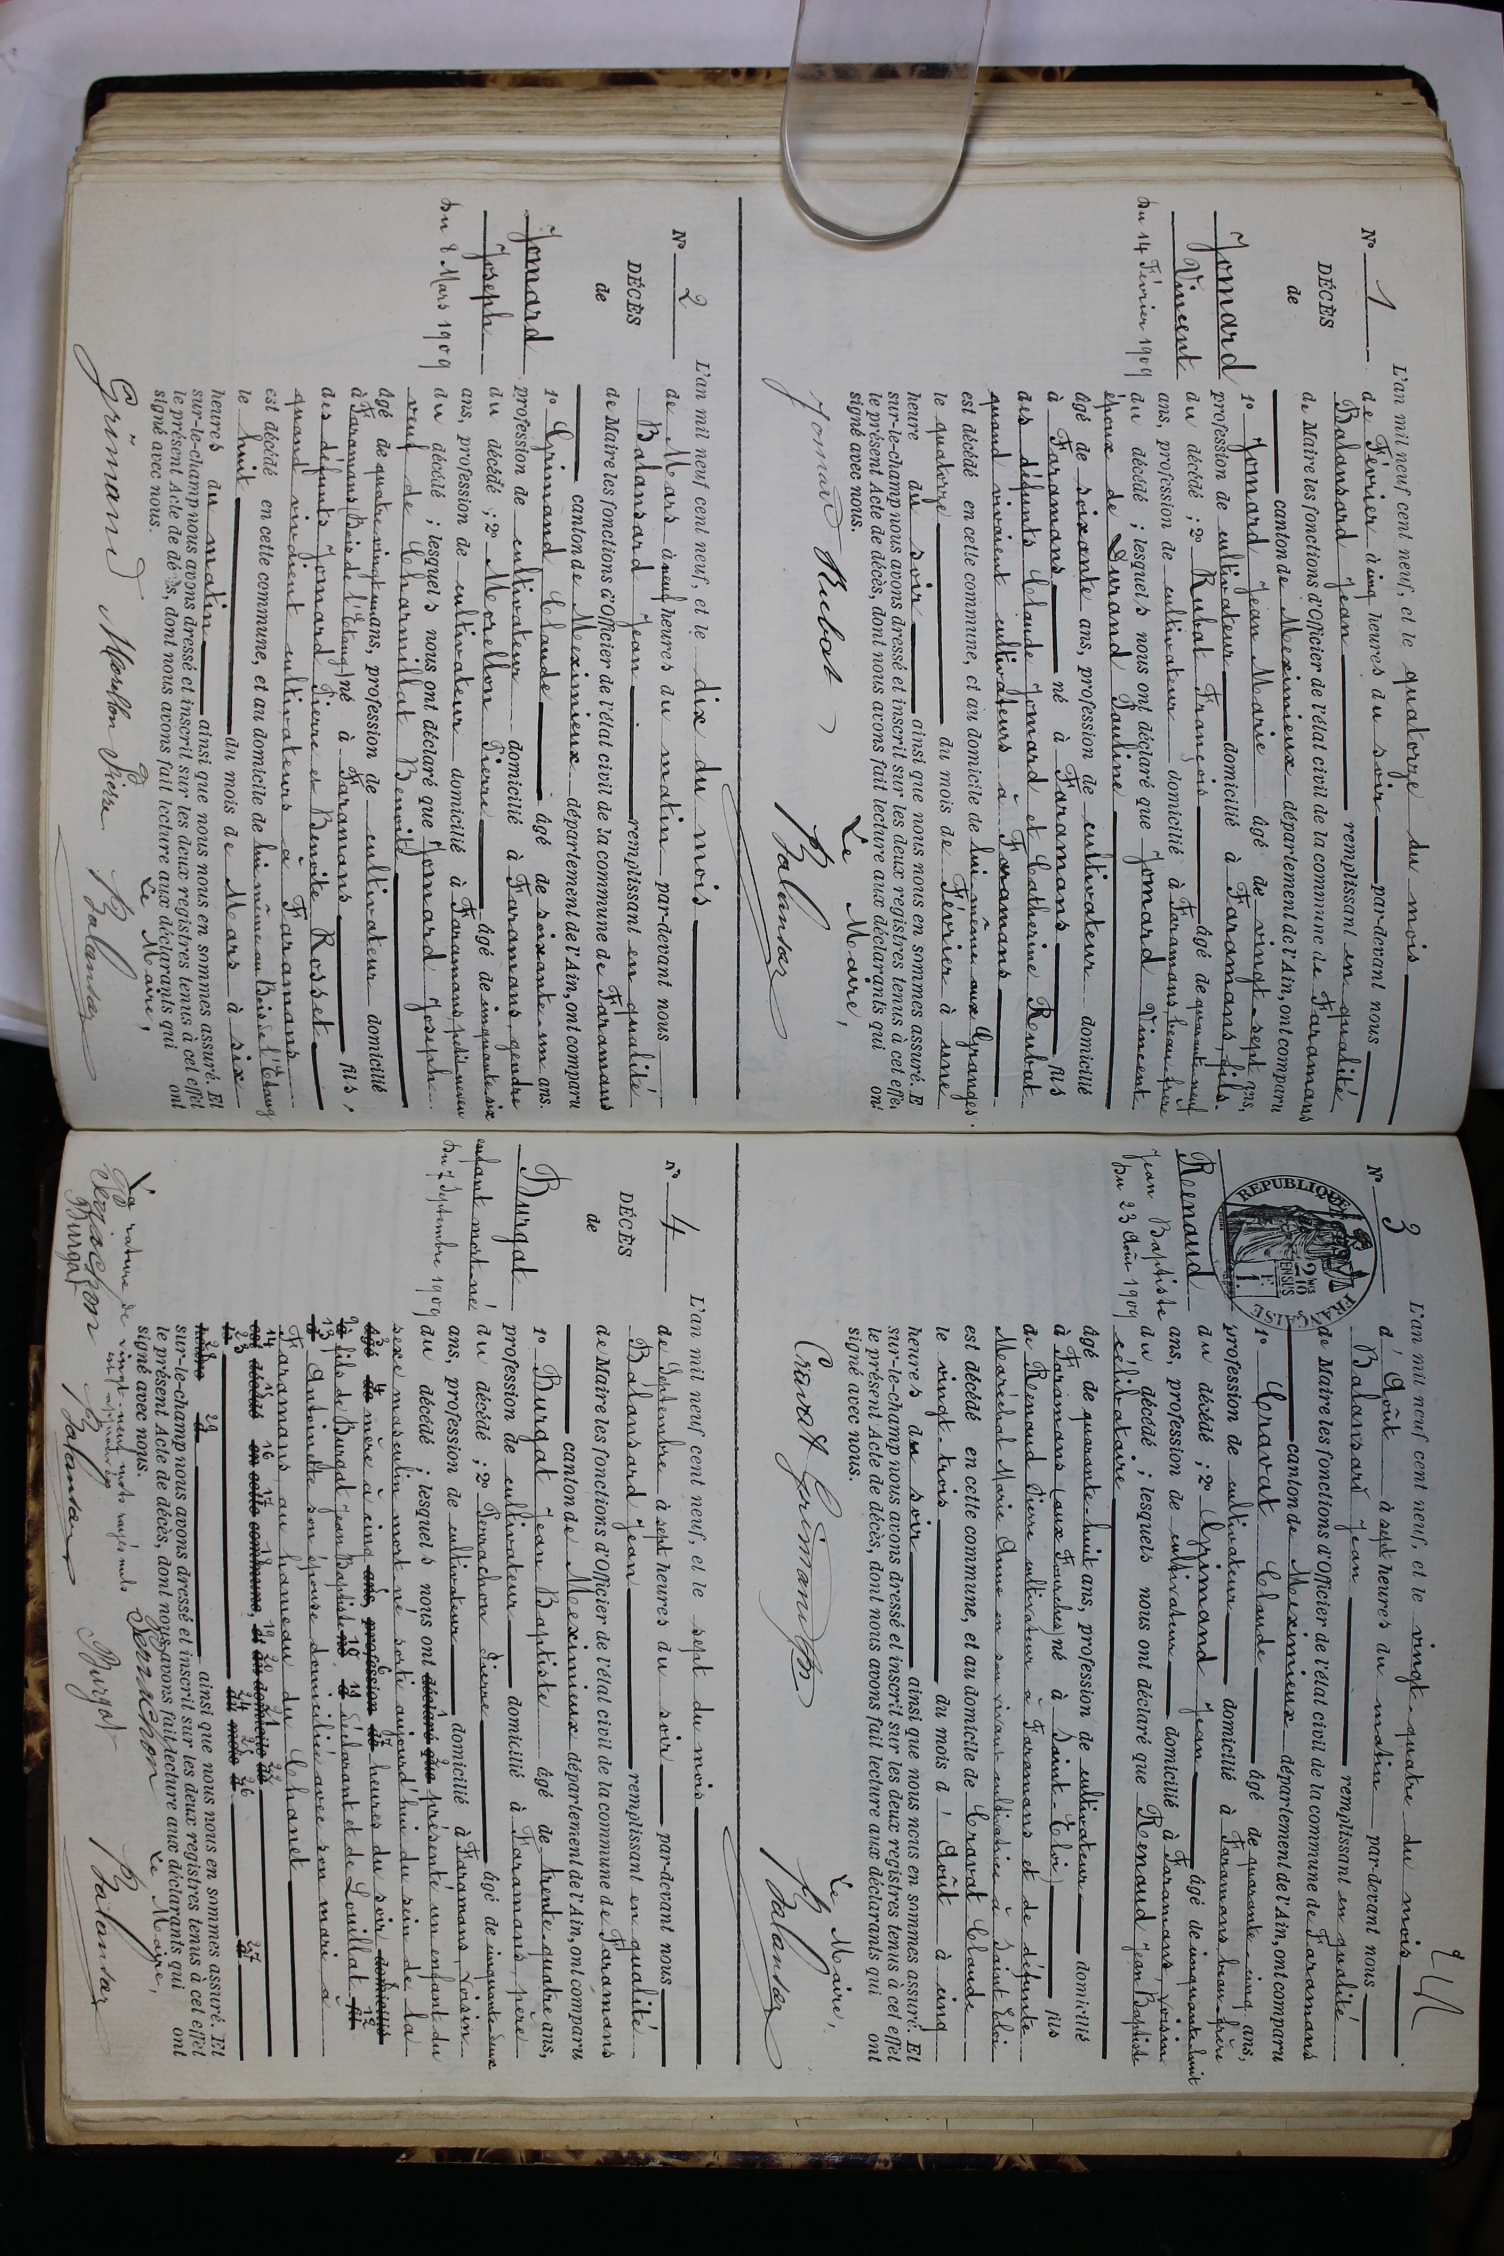 N° 1
DÉCÈS
de
Jomard
Vincent
Du 14 Février 1909
L'an mil neuf cent neuf, et le quatorze du mois
de Février à cinq heures du soir par-devant nous
Balansard Jean remplissant en qualité
de Maire les fonctions d'Officier de l'état civil de la commune de Faramans
canton de Meximieux département de l'Ain, ont comparu
1° Jomard Jean Marie âgé de vingt-sept ans,
profession de cultivateur domicilié à Faramans, fils
du décédé ; 2° Rubat François âgé de quarante neuf
ans, profession de cultivateur domicilié à Faramans, beau-frère
du décédé ; lesquels nous ont déclaré que Jomard Vincent
époux de Durand Pauline
âgé de soixante ans, profession de cultivateur domicilié
à Faramans né à Faramans fils
des défunts Claude Jomard et Catherine Rubat
quand vivaient cultivateurs à Faramans
est décédé en cette commune, et au domicile de lui même aux Granges
le quatorze du mois de Février à une
heure du soir ainsi que nous nous en sommes assuré. E
sur-le-champ nous avons dressé et inscrit sur les deux registres tenus à cet effet
le présent Acte de décès, dont nous avons fait lecture aux déclarants qui ont
signé avec nous.
Le Maire,
Jomard Rubat Balansard
N° 2
DÉCÈS
de
Jomard
Joseph
Du 8 Mars 1909
L'an mil neuf cent neuf, et le dix du mois
de Mars à neuf heures du matin par-devant nous
Balansard Jean remplissant en qualité
de Maire les fonctions d'Officier de l'état civil de la commune de Faramans
canton de Meximieux département de l'Ain, ont comparu
1° Grimand Claude âgé de soixante-un ans.
profession de cultivateur domicilié à Faramans, gendre
du décédé ; 2° Morellon Pierre âgé de cinquante-six
ans, profession de cultivateur domicilié à Faramans, petit-neveu
du décédé ; lesquels nous ont déclaré que Jomard Joseph
veuf de Charmillat Benoite
âgé de quatre vingt un ans, profession de cultivateur domicilié
à Faramans (Bois de l'Etang) né à Faramans fils,
des défunts Jomard Pierre et Benoite Rosset
quand vivaient cultivateurs à Faramans
est décédé en cette commune, et au domicile de lui même au Bois de l'Etang
le huit du mois de Mars à six
heures du matin ainsi que nous nous en sommes assuré. Et
sur-le-champ nous avons dressé et inscrit sur les deux registres tenus à cet effet
le présent Acte de décès, dont nous avons fait lecture aux déclarants qui ont
signé avec nous.
Le Maire,
Grimand Morellon Pierre Balansard
N° 3
REPUBLIQUE FRANÇAISE
Renaud
Jean Baptiste
Du 23 Août 1909
L'an mil neuf cent neuf, et le vingt-quatre du mois
d'Août à sept heures du matin par-devant nous
Balansard Jean remplissant en qualité
de Maire les fonctions d'Officier de l'état civil de la commune de Faramans
canton de Meximieux département de l'Ain, ont comparu
1° Cravat Claude âgé de quarante-cinq ans,
profession de cultivateur domicilié à Faramans beau-frère
du décédé ; 2° Grimand Jean âgé de cinquante huit
ans, profession de cultivateur domicilié à Faramans, voisin
du décédé ; lesquels nous ont déclaré que Renaud Jean Baptiste
célibataire
âgé de quarante-huit ans, profession de cultivateur domicilié
à Faramans (aux Fourches) né à Saint-Eloi fils
de Renaud Pierre cultivateur à Faramans et de défunte
Maréchal Marie Anne en son vivant cultivatrice à Saint Eloi
est décédé en cette commune, et au domicile de Cravat Claude
le vingt-trois du mois d'Août à cinq
heures du soir ainsi que nous nous en sommes assuré. Et
sur-le-champ nous avons dressé et inscrit sur les deux registres tenus à cet effet
le présent Acte de décès, dont nous avons fait lecture aux déclarants qui ont
signé avec nous.
Le Maire,
Cravat Grimand Balansard
N° 4
DÉCÈS
de
Burgat
enfant mort-né
Du 7 Septembre 1909
L'an mil neuf cent neuf, et le sept du mois
de Septembre à sept heures du soir par-devant nous
Balansard Jean remplissant en qualité
de Maire les fonctions d'Officier de l'état civil de la commune de Faramans
canton de Meximieux département de l'Ain, ont comparu
1° Burgat Jean Baptiste âgé de trente-quatre ans,
profession de cultivateur domicilié à Faramans, père
du décédé ; 2° Perrachon Pierre âgé de cinquante-deux
ans, profession de cultivateur domicilié à Faramans, voisin
du décédé ; lesquels nous ont déclaré que présenté un enfant du
sexe masculin mort né sorti aujourd'hui du sein de la
âgé de mère à cinq ans, profession de heures du soir domicilié
à fils de Burgat Jean Baptiste né à déclarant et de Louillat fils
d Antoinette son épouse domiciliée avec son mari à
Faramans, au hameau du Chanet
est décédé en cette commune, et au domicile de
le du mois d à
heure d ainsi que nous nous en sommes assuré. Et
sur-le-champ nous avons dressé et inscrit sur les deux registres tenus à cet effet
le présent Acte de décès, dont nous avons fait lecture aux déclarants qui ont
signé avec nous.
Le Maire,
La rature de vingt-neuf mots rayés nuls
est approuvée
Perrachon Burgat Balansard
Perrachon Burgat Balansard